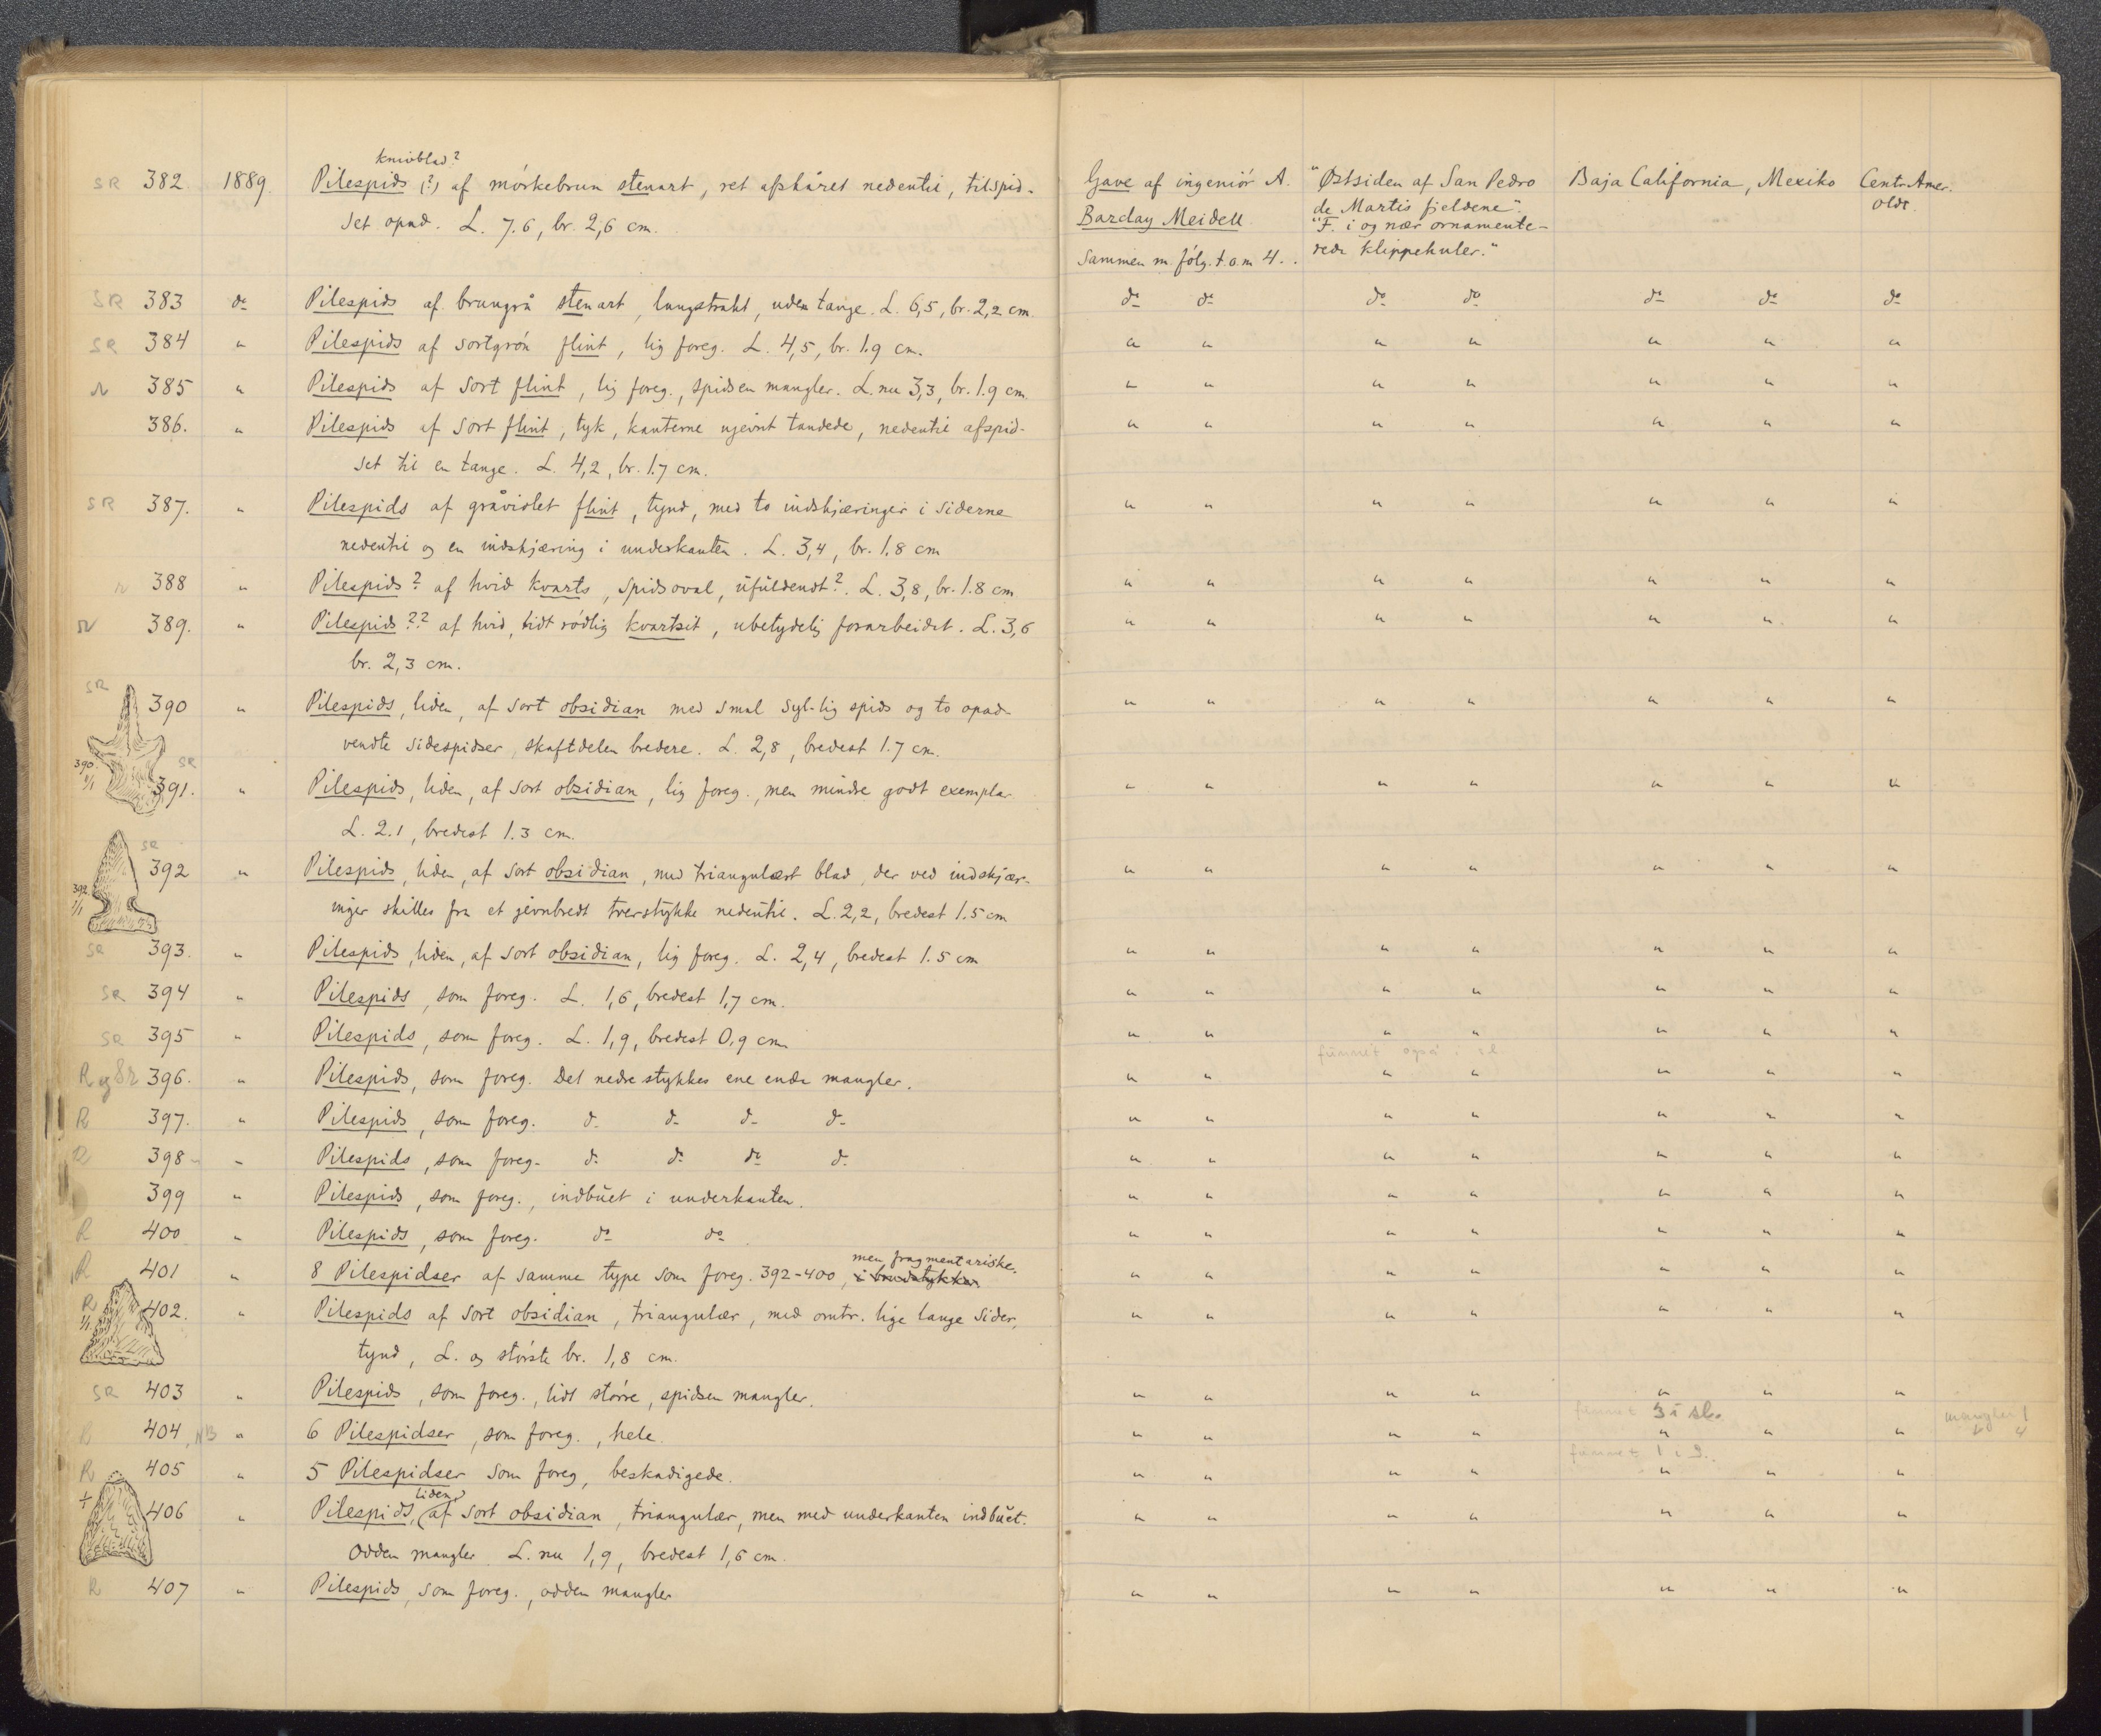 knivblad?
SR 382 1889 Pilespids (?) af mórkebrun stenart, ret afskåret nedentil, tilspid- Gave af ingeniör A. "Østsiden af San Pedro Baja California, Mexiko Centr. Amer.
set opad. L. 7.6, br. 2,6 cm. Barclay Meidell de Martis fjeldene". oldt.
"F. i og nær ornamente-
Sammen m. fólg. t.o.m 4.. rede klippehuler."
SR 383 do Pilespids af brungrå stenart, langstrakt, uden tange. L. 6,5, br. 2,2 cm. do do do do do do do
SR 384 " Pilespids af sortgrón flint, lig foreg. L. 4,5, br. 1.9 cm. " " " " " " "
R 385 " Pilespids af sort flint, lig foreg., spidsen mangler. L. nu 3,3, br. 1.9 cm. " " " " " " "
386. " Pilespids af sort flint, tyk, kanterne ujevnt tandede, nedentil afspid- " " " " " " "
set til en tange. L. 4,2, br. 1.7 cm.
SR 387. " Pilespids af gråviolet flint, tynd, med to indskjæringer i siderne " " " " " " "
nedentil og en indskjæring i underkanten. L. 3,4, br. 1.8 cm
R 388 " Pilespids? af hvid kvarts, spidsoval, ufuldendt?. L. 3,8, br. 1.8 cm " " " " " " "
R 389. " Pilespids?? af hvid, lidt ródlig kvartsit, ubetydelig forarbeidet. L. 3,6 " " " " " " "
br. 2,3 cm.
SR 390 " Pilespids, liden, af sort obsidian med smal syl-lig spids og to opad- " " " " " " "
vendte sidespidser, skaftdelen bredere. L. 2,8, bredest 1.7 cm.
390. 1/1
SR 391. " Pilespids, liden, af sort obsidian, lig foreg., men mindre godt exemplar " " " " " " "
L. 2.1, bredest 1.3 cm.
SR 392 " Pilespids, liden, af sort obsidian, med triangulært blad, der ved indskjær- " " " " " " "
392 1/1 inger skilles fra et jevnbredt tverstykke nedentil. L. 2,2, bredest 1.5 cm
SR 393. " Pilespids, liden, af sort obsidian, lig foreg. L. 2,4, bredest 1.5 cm " " " " " " "
SR 394 " Pilespids, som foreg. L. 1,6, bredest 1,7 cm. " " " " " " "
SR 395 " Pilespids, som foreg. L. 1,9, bredest 0,9 cm " " " " " " "
funnet også i
R og SR 396. " Pilespids, som foreg. Det nedre stykkes ene ende mangler. " " " " " " "
R 397. " Pilespids, som foreg. do do do do " " " " " " "
R 398 " Pilespids, som foreg. do do do do " " " " " " "
399 " Pilespids, som foreg., indbuet i underkanten. " " " " " " "
R 400 " Pilespids, som foreg. do do " " " " " " "
men fragmentariske.
R 401 " 8 Pilespidser af samme type som foreg. 392-400, i brudstykker " " " " " " "
R 402. " Pilespids af sort obsidian, triangulær, med omtr. lige lange sider, " " " " " " "
1/1 tynd, L. og stórste br. 1,8 cm.
SR 403 " Pilespids, som foreg., lidt stórre, spidsen mangler. " " " " " " "
funnet 3 i sk. mangler 1
R 404, NB " 6 Pilespidser, som foreg., hele. " " " " " " " 4
funnet 1
R 405 " 5 Pilespidser som foreg, beskadigede. " " " " " " "
liden,
406 " Pilespids, af sort obsidian, triangulær, men med underkanten indbuet. " " " " " " "
Odden mangler. L. nu 1,9, bredest 1,6 cm.
R 407 " Pilespids, som foreg., odden mangler " " " " " " "